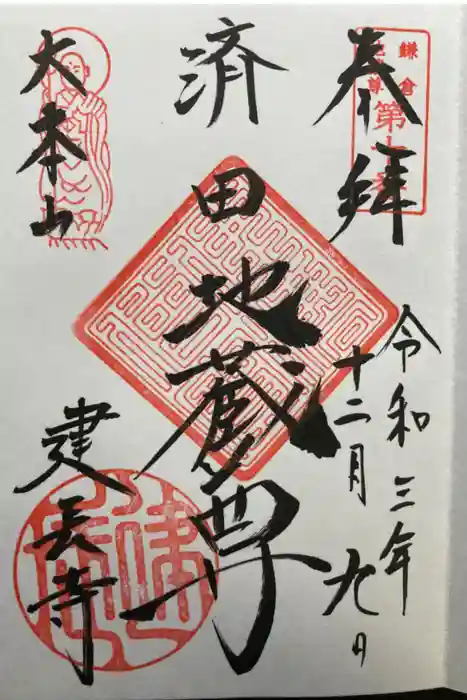 奉拝
令和三年
十二月九日
済田地蔵尊
大本山
建長寺
鎌倉
第